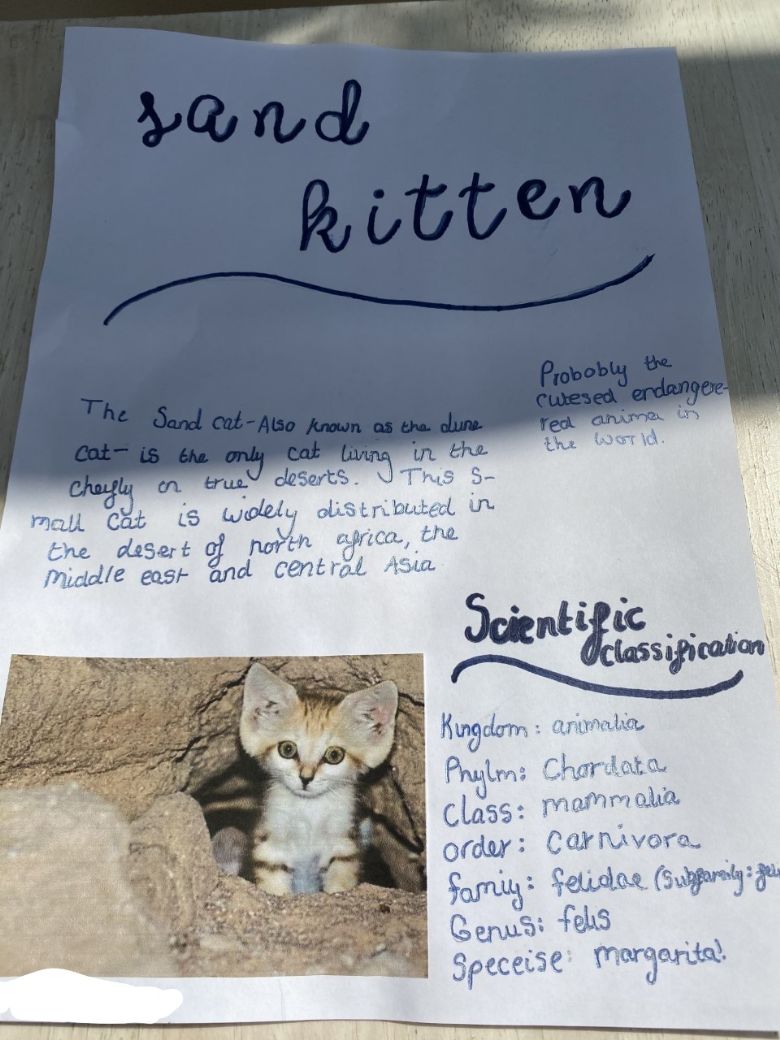 sand
kitten
The Sand cat-Also known as the dune
cat- is the only cat living in the
cheyfly on true deserts. This s-
mall cat is widely distributed in
the desert of north africa, the
Middle east and central Asia
Probobly the
cutesed endangere-
red anima in
the world.
Scientific
classification
Kingdom: animalia
Phylm: Chordata
class: mammalia
order: Carnivora
famiy: felidae (Subfamily: fel
Genus: felis
Speceise: margarita!